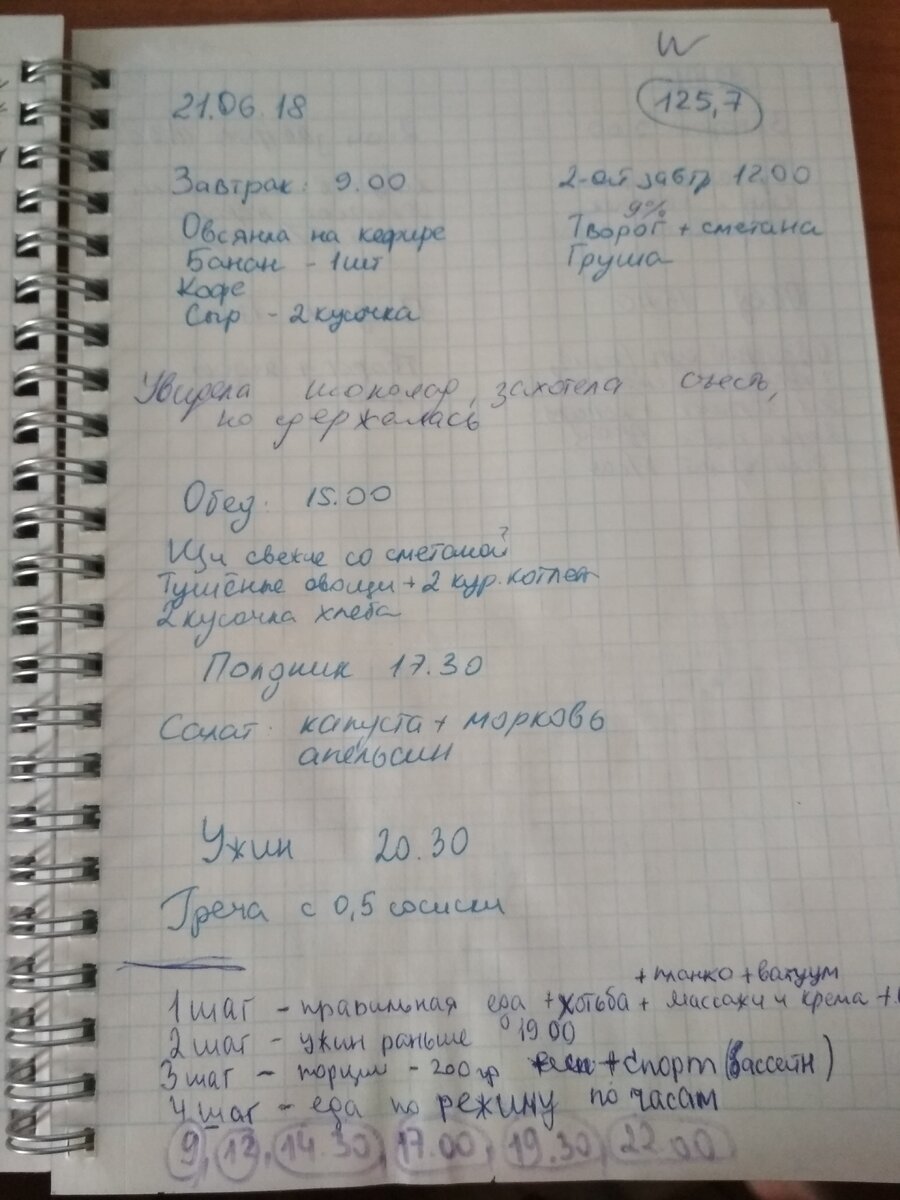 W
21.06.18 125,7
Завтрак: 9.00
Овсянка на кефире
Банан - 1 шт
Кофе
Сыр - 2 кусочка
2-ой завтр 12.00
9%
Творог + сметана
Груша
Увидела шоколад, захотела съесть,
но сдержалась
Обед. 15.00
Щи свекле со сметаной ?
Тушёные овощи + 2 кур. котлет
2 кусочка хлеба
Полдник 17.30
Салат. капуста + морковь
апельсин
Ужин 20.30
Греча с 0,5 сосиски
+ планко + вакуум
1 шаг - правильная еда + хотьба + массажи и крема +
2 шаг - ужин раньше 19 00
3 шаг - порции - 200 гр + спорт (бассейн)
4 шаг - еда по режиму по часам
9, 12, 14.30, 17.00, 19.30, 22.00